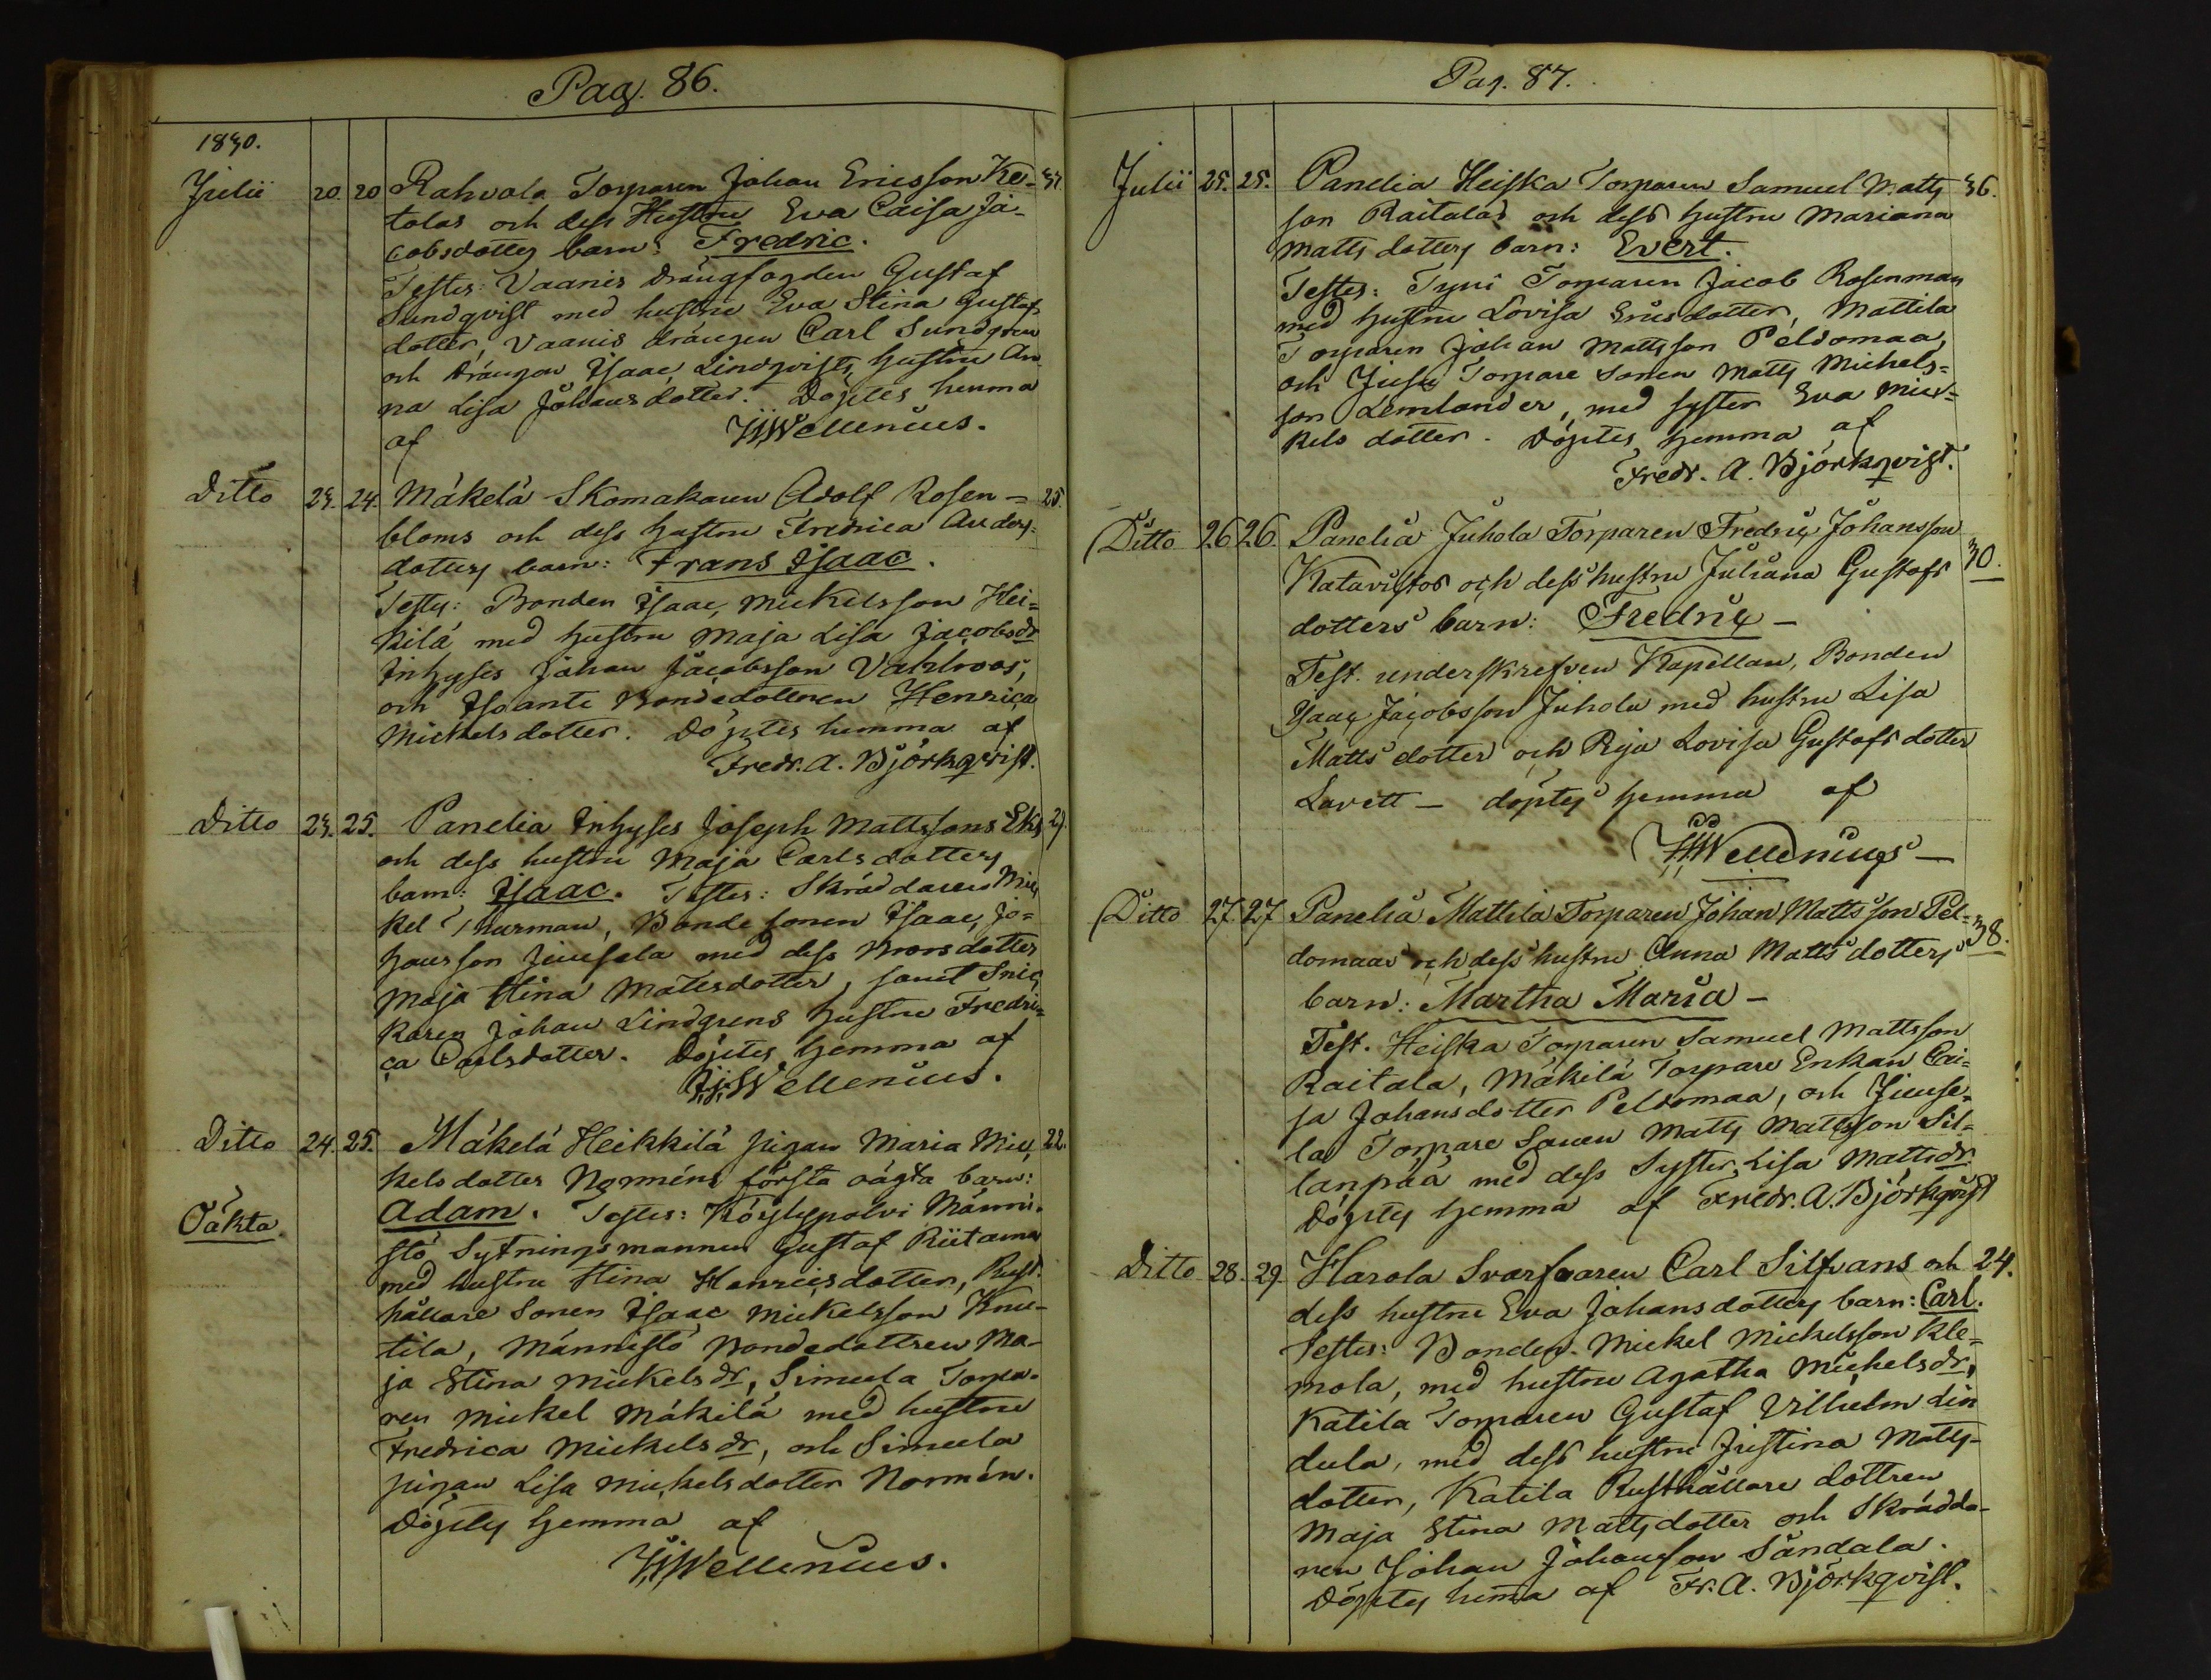 Pag. 86.
1830.
Julii 20. 20 Rahvola Torparen Johan Ericsson Ke- 37.
tolas och dess Hustru Eva Caisa Ja-
cobsdotters barn: Fredric.
Testes: Vaanis drängfogden Gustaf
Sundqvist med hustru Eva Stina Gustafs
dotter, Vaanis drängen Carl Sundgren
och Drängen Isaac Lindqvists hustru An-
na Lisa Johansdotter. Döptes hemma
af Wellenius.
Ditto 23. 24. Mäkelä Skomakaren Adolf Rosen= 25.
bloms och dess hustru Fredrica Anders=
dotters barn: Frans Isaac.
Testes: Bonden Isaac Mickelsson Hei=
kilä med hustru Maja Lisa Jacobsdr
Inhyses Johan Jacobsson Vahlroos,
och Isoante Bondedottren Henrica
Mickelsdotter. Döptes hemma af
Fredr. A. Björkqvist.
Ditto 23. 25. Panelia Inhyses Joseph Mattssons Eks 29.
och dess hustru Maja Carlsdotters
barn: Isaac. Testes: Skräddaren Mic
kel Thurman, Bonde sonen Isaac Jo=
hansson Juusela med dess Brorsdotter
Maja Stina Matsdotter, samt Snic
karen Johan Lindgrens hustru Fredri=
ca Carlsdotter. Döptes hemma af
Wellenius.
Ditto 24. 25. Mäkelä Heikkilä pigan Maria Mic, 22.
kelsdotter Norméns första oägta barn:
Oäkta. Adam. Testes: Köylypolvi Männi-
stö Sytningsmannen Gustaf Riitamaa
med hustru Stina Henricsdotter, Rust=
hållare Sonen Isaac Mickelsson Knu-
tila, Männistö Bondedottren Ma-
ja Stina Mickelsdr, Simula Torpa-
ren Mickel Mäkilä med hustru
Fredrica Mickelsdr, och Simula
pigan Lisa Mickelsdotter Normén.
Döptes hemma af
Wellenius.
Pag. 87.
Julii 25. 25. Panelia Heiska Torparen Samuel Matts 36.
son Raitalas och dess hustru Mariana
Matts dotters barn: Evert.
Testes: Tyni Torparen Jacob Rosenman
med hustru Lovisa Ericsdotter, Mattila
Torparen Johan Mattsson Peldomaa,
och Torpare Sonen Matts Michels=
son Lemlander, med syster Eva Mic=
kels dotter. Döptes hemma af
Fredr. A. Björkqvist.
Ditto 26 26. Panelia Juhola Torparen Fredric Johansson
Katavistos och dess hustru Juliana Gustafs 30.
dotters barn: Fredric —
Test. underskrefven Kapellan, Bonden
Isaac Jacobsson Juhola med hustru Lisa
Matts dotter och Piga Lovisa Gustafs dotter
Lavett — döptes hemma af
Wellenius —
Ditto 27 27 Panelia Mattila Torparen Johan Mattsson Pel=
domaas och dess hustru Anna Matts dotters 38.
barn: Martha Maria —
Test. Heiska Torparen Samuel Mattsson
Raitala, Mäkilä Torpare Enkan Cai=
sa Johansdotter Peldomaa, och Juuse=
la Torpare Sonen Matts Mattsson Sil=
lanpää med dess Syster Lisa Mattsdr.
Döptes hemma af Fredr. A. Björkqvist
Ditto 28. 29. Harola Svarfvaren Carl Silfvans och 24.
dess hustru Eva Johansdotters barn: Carl.
Testes: Bonden Mickel Mickelsson Kle=
mola, med hustru Agatha Mickelsdr,
Katila Torparen Gustaf Vilhelm Lin
dula, med dess hustru Justina Matts-
dotter, Katila Rusthållare dottren
Maja Stina Mattsdotter och Skrädda-
ren Johan Johansson Sandala.
Döptes hema af Fr. A. Björkqvist.